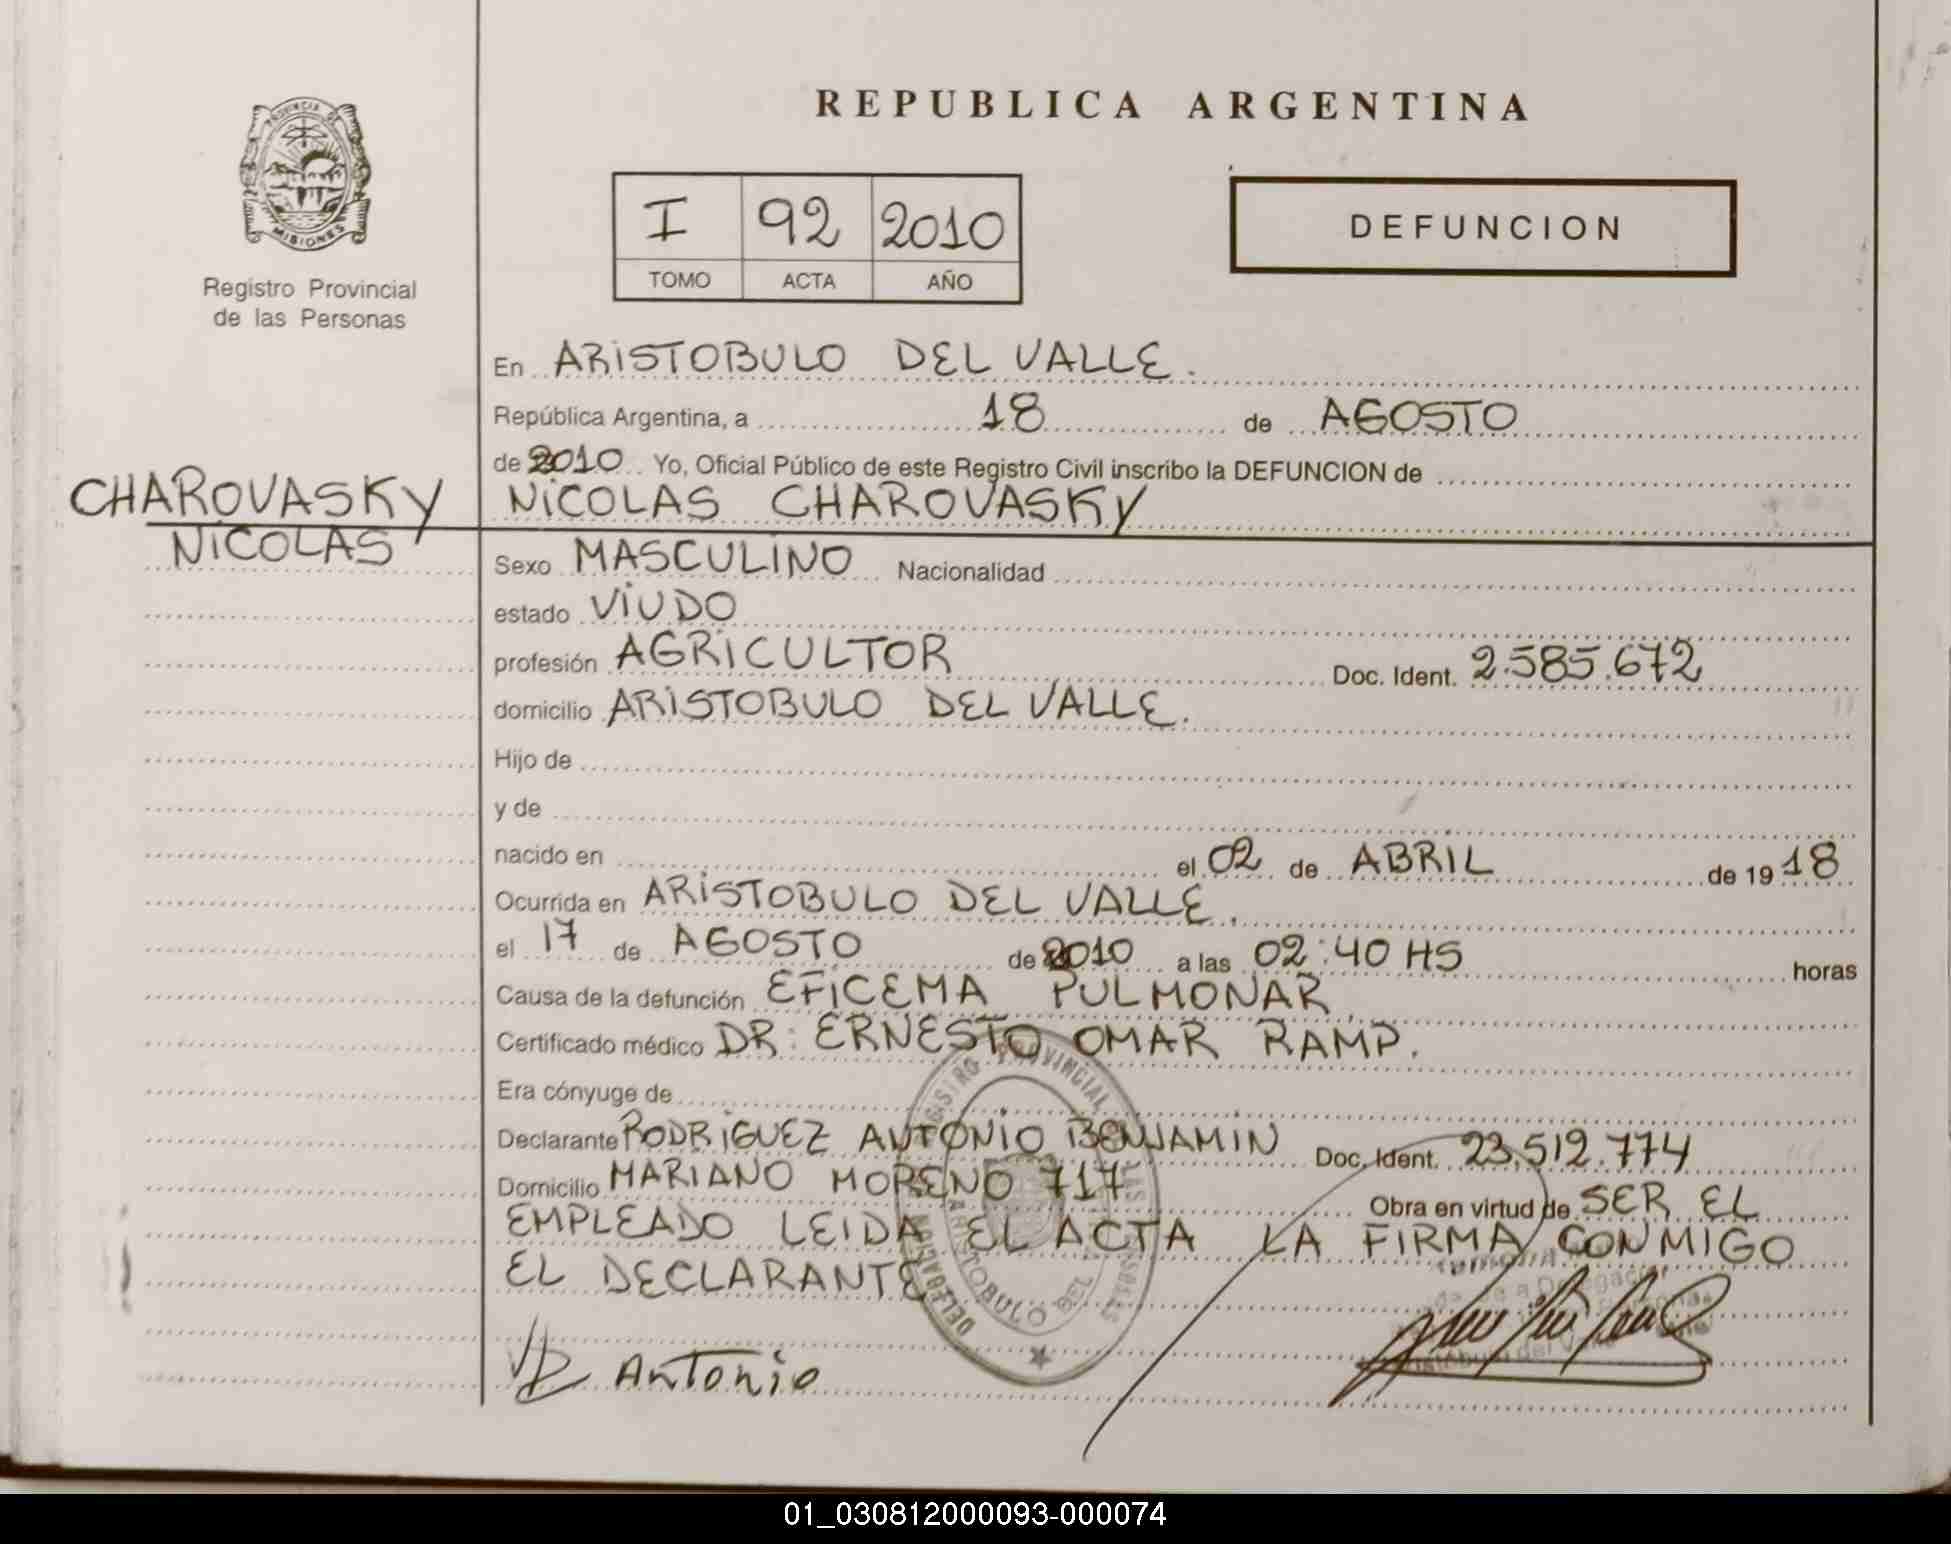 REPUBLICA ARGENTINA
PROVINCIA DE
MISIONES
Registro Provincial
de las Personas
I 92 2010
TOMO ACTA AÑO
DEFUNCION
En ARISTOBULO DEL VALLE.
República Argentina, a 18 de AGOSTO
de 2010 Yo, Oficial Público de este Registro Civil inscribo la DEFUNCION de
CHAROVASKY
NICOLAS
NICOLAS CHAROVASKY
Sexo MASCULINO Nacionalidad
estado VIUDO
profesión AGRICULTOR Doc. Ident. 2.585.672
domicilio ARISTOBULO DEL VALLE.
Hijo de
y de
nacido en el 02 de ABRIL de 19 18
Ocurrida en ARISTOBULO DEL VALLE.
el 17 de AGOSTO de 2010 a las 02:40 HS horas
Causa de la defunción EFICEMA PULMONAR
Certificado médico DR: ERNESTO OMAR RAMP.
Era cónyuge de
Declarante RODRIGUEZ ANTONIO BENJAMIN Doc. Ident. 23.512.774
Domicilio MARIANO MORENO 717 Obra en virtud de SER EL
EMPLEADO LEIDA EL ACTA LA FIRMA CONMIGO
EL DECLARANTE
REGISTRO PROVINCIAL DE LAS PERSONAS
DELEGACION
ARISTOBULO DEL
Antonio
01_030812000093-000074